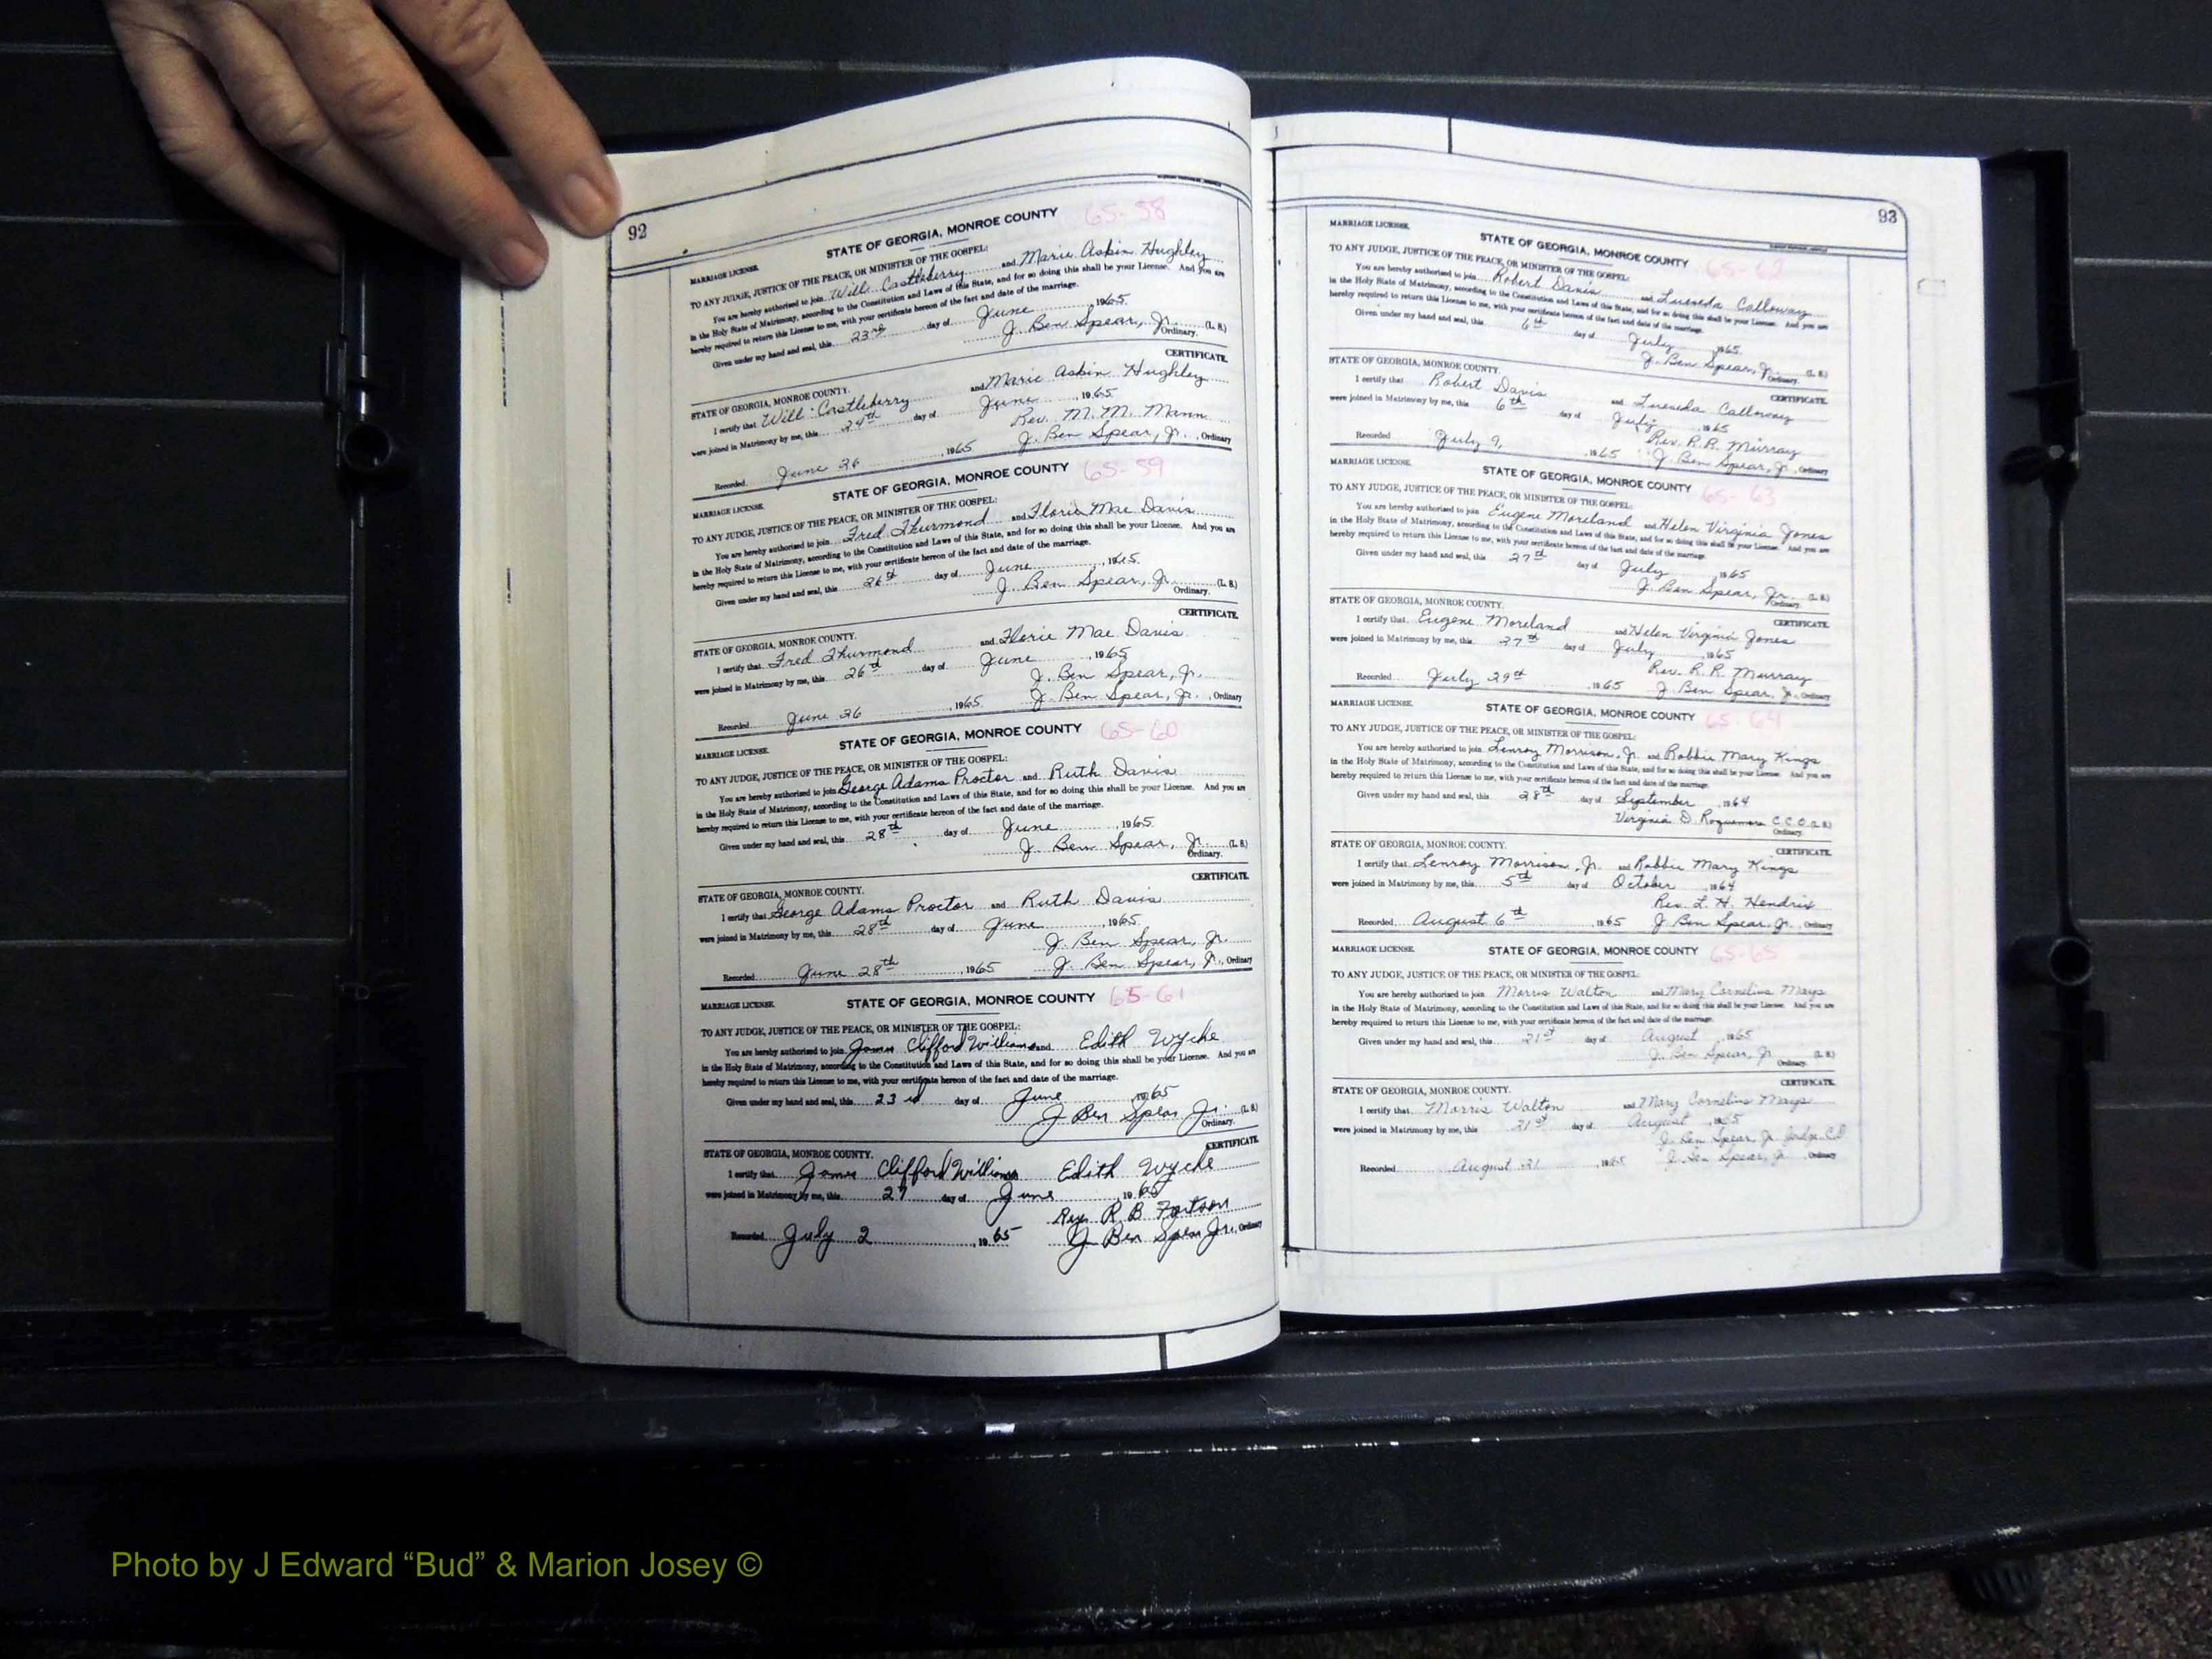 92
STATE OF GEORGIA, MONROE COUNTY 65-58
MARRIAGE LICENSE.
TO ANY JUDGE, JUSTICE OF THE PEACE, OR MINISTER OF THE GOSPEL:
You are hereby authorized to join Will Castleberry and Marie Askin Hughley
in the Holy State of Matrimony, according to the Constitution and Laws of this State, and for so doing this shall be your License. And you are
hereby required to return this License to me, with your certificate hereon of the fact and date of the marriage.
Given under my hand and seal, this 23rd day of June, 1965.
J. Ben Spear, Jr. (L. S.)
Ordinary.
CERTIFICATE.
STATE OF GEORGIA, MONROE COUNTY.
I certify that Will Castleberry and Marie Askin Hughley
were joined in Matrimony by me, this 24th day of June, 1965
Rev. M. M. Mann
Recorded June 26, 1965 J. Ben Spear, Jr., Ordinary
STATE OF GEORGIA, MONROE COUNTY 65-59
MARRIAGE LICENSE.
TO ANY JUDGE, JUSTICE OF THE PEACE, OR MINISTER OF THE GOSPEL:
You are hereby authorized to join Fred Thurmond and Florie Mae Davis
in the Holy State of Matrimony, according to the Constitution and Laws of this State, and for so doing this shall be your License. And you are
hereby required to return this License to me, with your certificate hereon of the fact and date of the marriage.
Given under my hand and seal, this 26th day of June, 1965.
J. Ben Spear, Jr. (L. S.)
Ordinary.
CERTIFICATE.
STATE OF GEORGIA, MONROE COUNTY.
I certify that Fred Thurmond and Florie Mae Davis
were joined in Matrimony by me, this 26th day of June, 1965
J. Ben Spear, Jr.
Recorded June 26, 1965. J. Ben Spear, Jr., Ordinary
STATE OF GEORGIA, MONROE COUNTY 65-60
MARRIAGE LICENSE.
TO ANY JUDGE, JUSTICE OF THE PEACE, OR MINISTER OF THE GOSPEL:
You are hereby authorized to join George Adams Proctor and Ruth Davis
in the Holy State of Matrimony, according to the Constitution and Laws of this State, and for so doing this shall be your License. And you are
hereby required to return this License to me, with your certificate hereon of the fact and date of the marriage.
Given under my hand and seal, this 28th day of June, 1965.
J. Ben Spear, Jr. (L. S.)
Ordinary.
CERTIFICATE.
STATE OF GEORGIA, MONROE COUNTY.
I certify that George Adams Proctor and Ruth Davis
were joined in Matrimony by me, this 28th day of June, 1965.
J. Ben Spear, Jr.
Recorded June 28th, 1965 J. Ben Spear, Jr., Ordinary
MARRIAGE LICENSE. STATE OF GEORGIA, MONROE COUNTY 65-61
TO ANY JUDGE, JUSTICE OF THE PEACE, OR MINISTER OF THE GOSPEL:
You are hereby authorized to join James Clifford Williams and Edith Wyche
in the Holy State of Matrimony, according to the Constitution and Laws of this State, and for so doing this shall be your License. And you are
hereby required to return this License to me, with your certificate hereon of the fact and date of the marriage.
Given under my hand and seal, this 23rd day of June, 1965
J Ben Spear Jr. (L. S.)
Ordinary.
CERTIFICATE.
STATE OF GEORGIA, MONROE COUNTY.
I certify that James Clifford Williams Edith Wyche
were joined in Matrimony by me, this 27 day of June, 1965
Rev. R B Fortson
Recorded July 2, 1965 J Ben Spear Jr., Ordinary
93
MARRIAGE LICENSE. STATE OF GEORGIA, MONROE COUNTY 65-62
TO ANY JUDGE, JUSTICE OF THE PEACE, OR MINISTER OF THE GOSPEL:
You are hereby authorized to join Robert Davis and Calloway
in the Holy State of Matrimony, according to the Constitution and Laws of this State, and for so doing this shall be your License. And you are
hereby required to return this License to me, with your certificate hereon of the fact and date of the marriage.
Given under my hand and seal, this 6th day of July 1965.
J. Ben Spear, Jr. (L. S.)
Ordinary.
CERTIFICATE.
STATE OF GEORGIA, MONROE COUNTY.
I certify that Robert Davis and Calloway
were joined in Matrimony by me, this 6th day of July, 1965
Rev. R. R. Murray
Recorded July 9, 1965 J. Ben Spear, Jr., Ordinary
MARRIAGE LICENSE. STATE OF GEORGIA, MONROE COUNTY 65-63
TO ANY JUDGE, JUSTICE OF THE PEACE, OR MINISTER OF THE GOSPEL:
You are hereby authorized to join Eugene Moreland and Helen Virginia Jones
in the Holy State of Matrimony, according to the Constitution and Laws of this State, and for so doing this shall be your License. And you are
hereby required to return this License to me, with your certificate hereon of the fact and date of the marriage.
Given under my hand and seal, this 27th day of July 1965
J. Ben Spear, Jr. (L. S.)
Ordinary.
CERTIFICATE.
STATE OF GEORGIA, MONROE COUNTY.
I certify that Eugene Moreland and Helen Virginia Jones
were joined in Matrimony by me, this 27th day of July, 1965
Rev. R. R. Murray
Recorded July 29th, 1965 J. Ben Spear, Jr., Ordinary
MARRIAGE LICENSE. STATE OF GEORGIA, MONROE COUNTY 65-64
TO ANY JUDGE, JUSTICE OF THE PEACE, OR MINISTER OF THE GOSPEL:
You are hereby authorized to join Lenroy Morrison, Jr. and Robbie Mary Kings
in the Holy State of Matrimony, according to the Constitution and Laws of this State, and for so doing this shall be your License. And you are
hereby required to return this License to me, with your certificate hereon of the fact and date of the marriage.
Given under my hand and seal, this 28th day of September, 1964
Virginia D. Roquemore C.C.O. (L. S.)
Ordinary.
CERTIFICATE.
STATE OF GEORGIA, MONROE COUNTY.
I certify that Lenroy Morrison, Jr. and Robbie Mary Kings
were joined in Matrimony by me, this 5th day of October, 1964
Rev. L. H. Hendrix
Recorded August 6th, 1965 J. Ben Spear, Jr., Ordinary
MARRIAGE LICENSE. STATE OF GEORGIA, MONROE COUNTY 65-65
TO ANY JUDGE, JUSTICE OF THE PEACE, OR MINISTER OF THE GOSPEL:
You are hereby authorized to join Morris Walton and Mary Cornelius Mays
in the Holy State of Matrimony, according to the Constitution and Laws of this State, and for so doing this shall be your License. And you are
hereby required to return this License to me, with your certificate hereon of the fact and date of the marriage.
Given under my hand and seal, this 21st day of August, 1965
J. Ben Spear, Jr. (L. S.)
Ordinary.
CERTIFICATE.
STATE OF GEORGIA, MONROE COUNTY.
I certify that Morris Walton and Mary Cornelius Mays
were joined in Matrimony by me, this 21st day of August, 1965
J. Ben Spear, Jr.
Recorded August 21, 1965 J. Ben Spear, Jr., Ordinary
Photo by J Edward “Bud” & Marion Josey ©